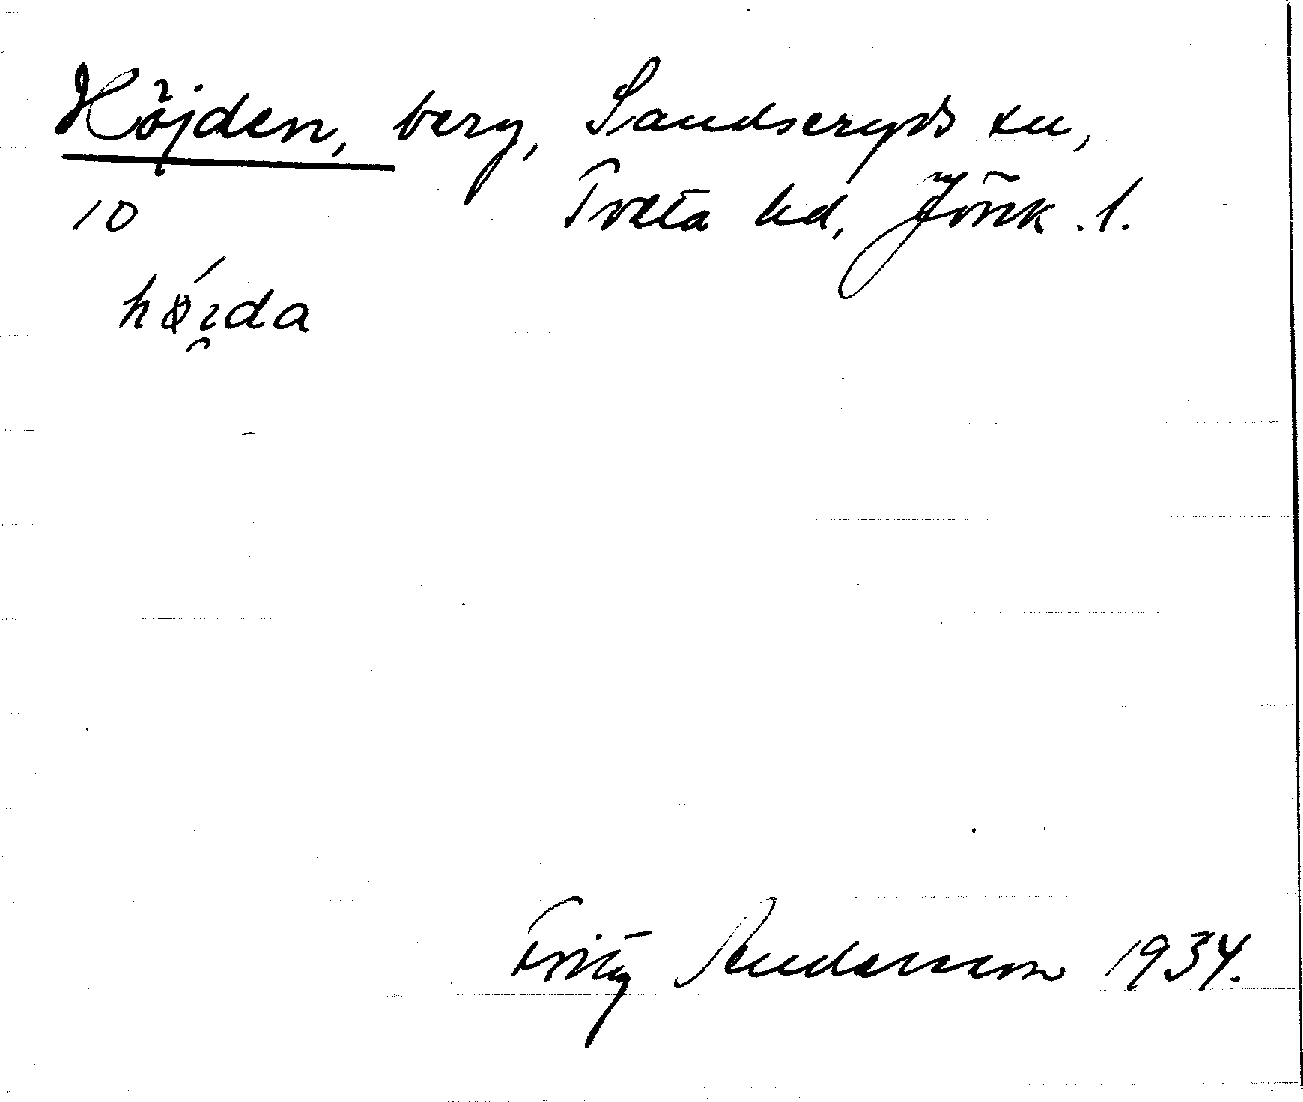 Höjden, berg, Sandseryds sn,
10 Tveta hd, Jönk. l.
hǿi̯da
Fritz Andersson 1934.